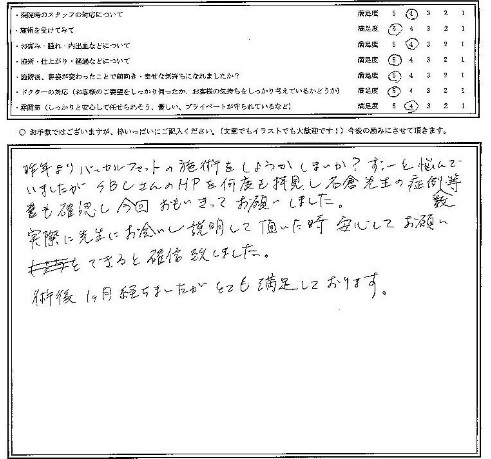 ・来院時のスタッフの対応について 満足度 5 4 3 2 1
・施術を受けてみて 満足度 5 4 3 2 1
・お痛み・腫れ・内出血などについて 満足度 5 4 3 2 1
・施術・仕上がり・経過などについて 満足度 5 4 3 2 1
・施術後、容姿が変わったことで前向き・幸せな気持ちになれましたか? 満足度 5 4 3 2 1
・ドクターの対応(お客様のご要望をしっかり伺ったか、お客様の気持ちをしっかり考えているかどうか) 満足度 5 4 3 2 1
・雰囲気(しっかりと安心して任せられそう、優しい、プライベートが守られているなど) 満足度 5 4 3 2 1
○ お手数ではございますが、枠いっぱいにご記入ください。(文章でもイラストでも大歓迎です!)今後の励みにさせて頂きます。
昨年よりバッカルファットの施術をしようかしまいか?ずーっと悩んで
いましたがSBCさんのHPを何度も拝見し名倉先生の症例等
数も確認し今回おもいきってお願いしました。
実際に先生にお会いし説明して頂いた時安心してお願い
をできると確信致しました。
術後1ヶ月経ちましたがとても満足しております。